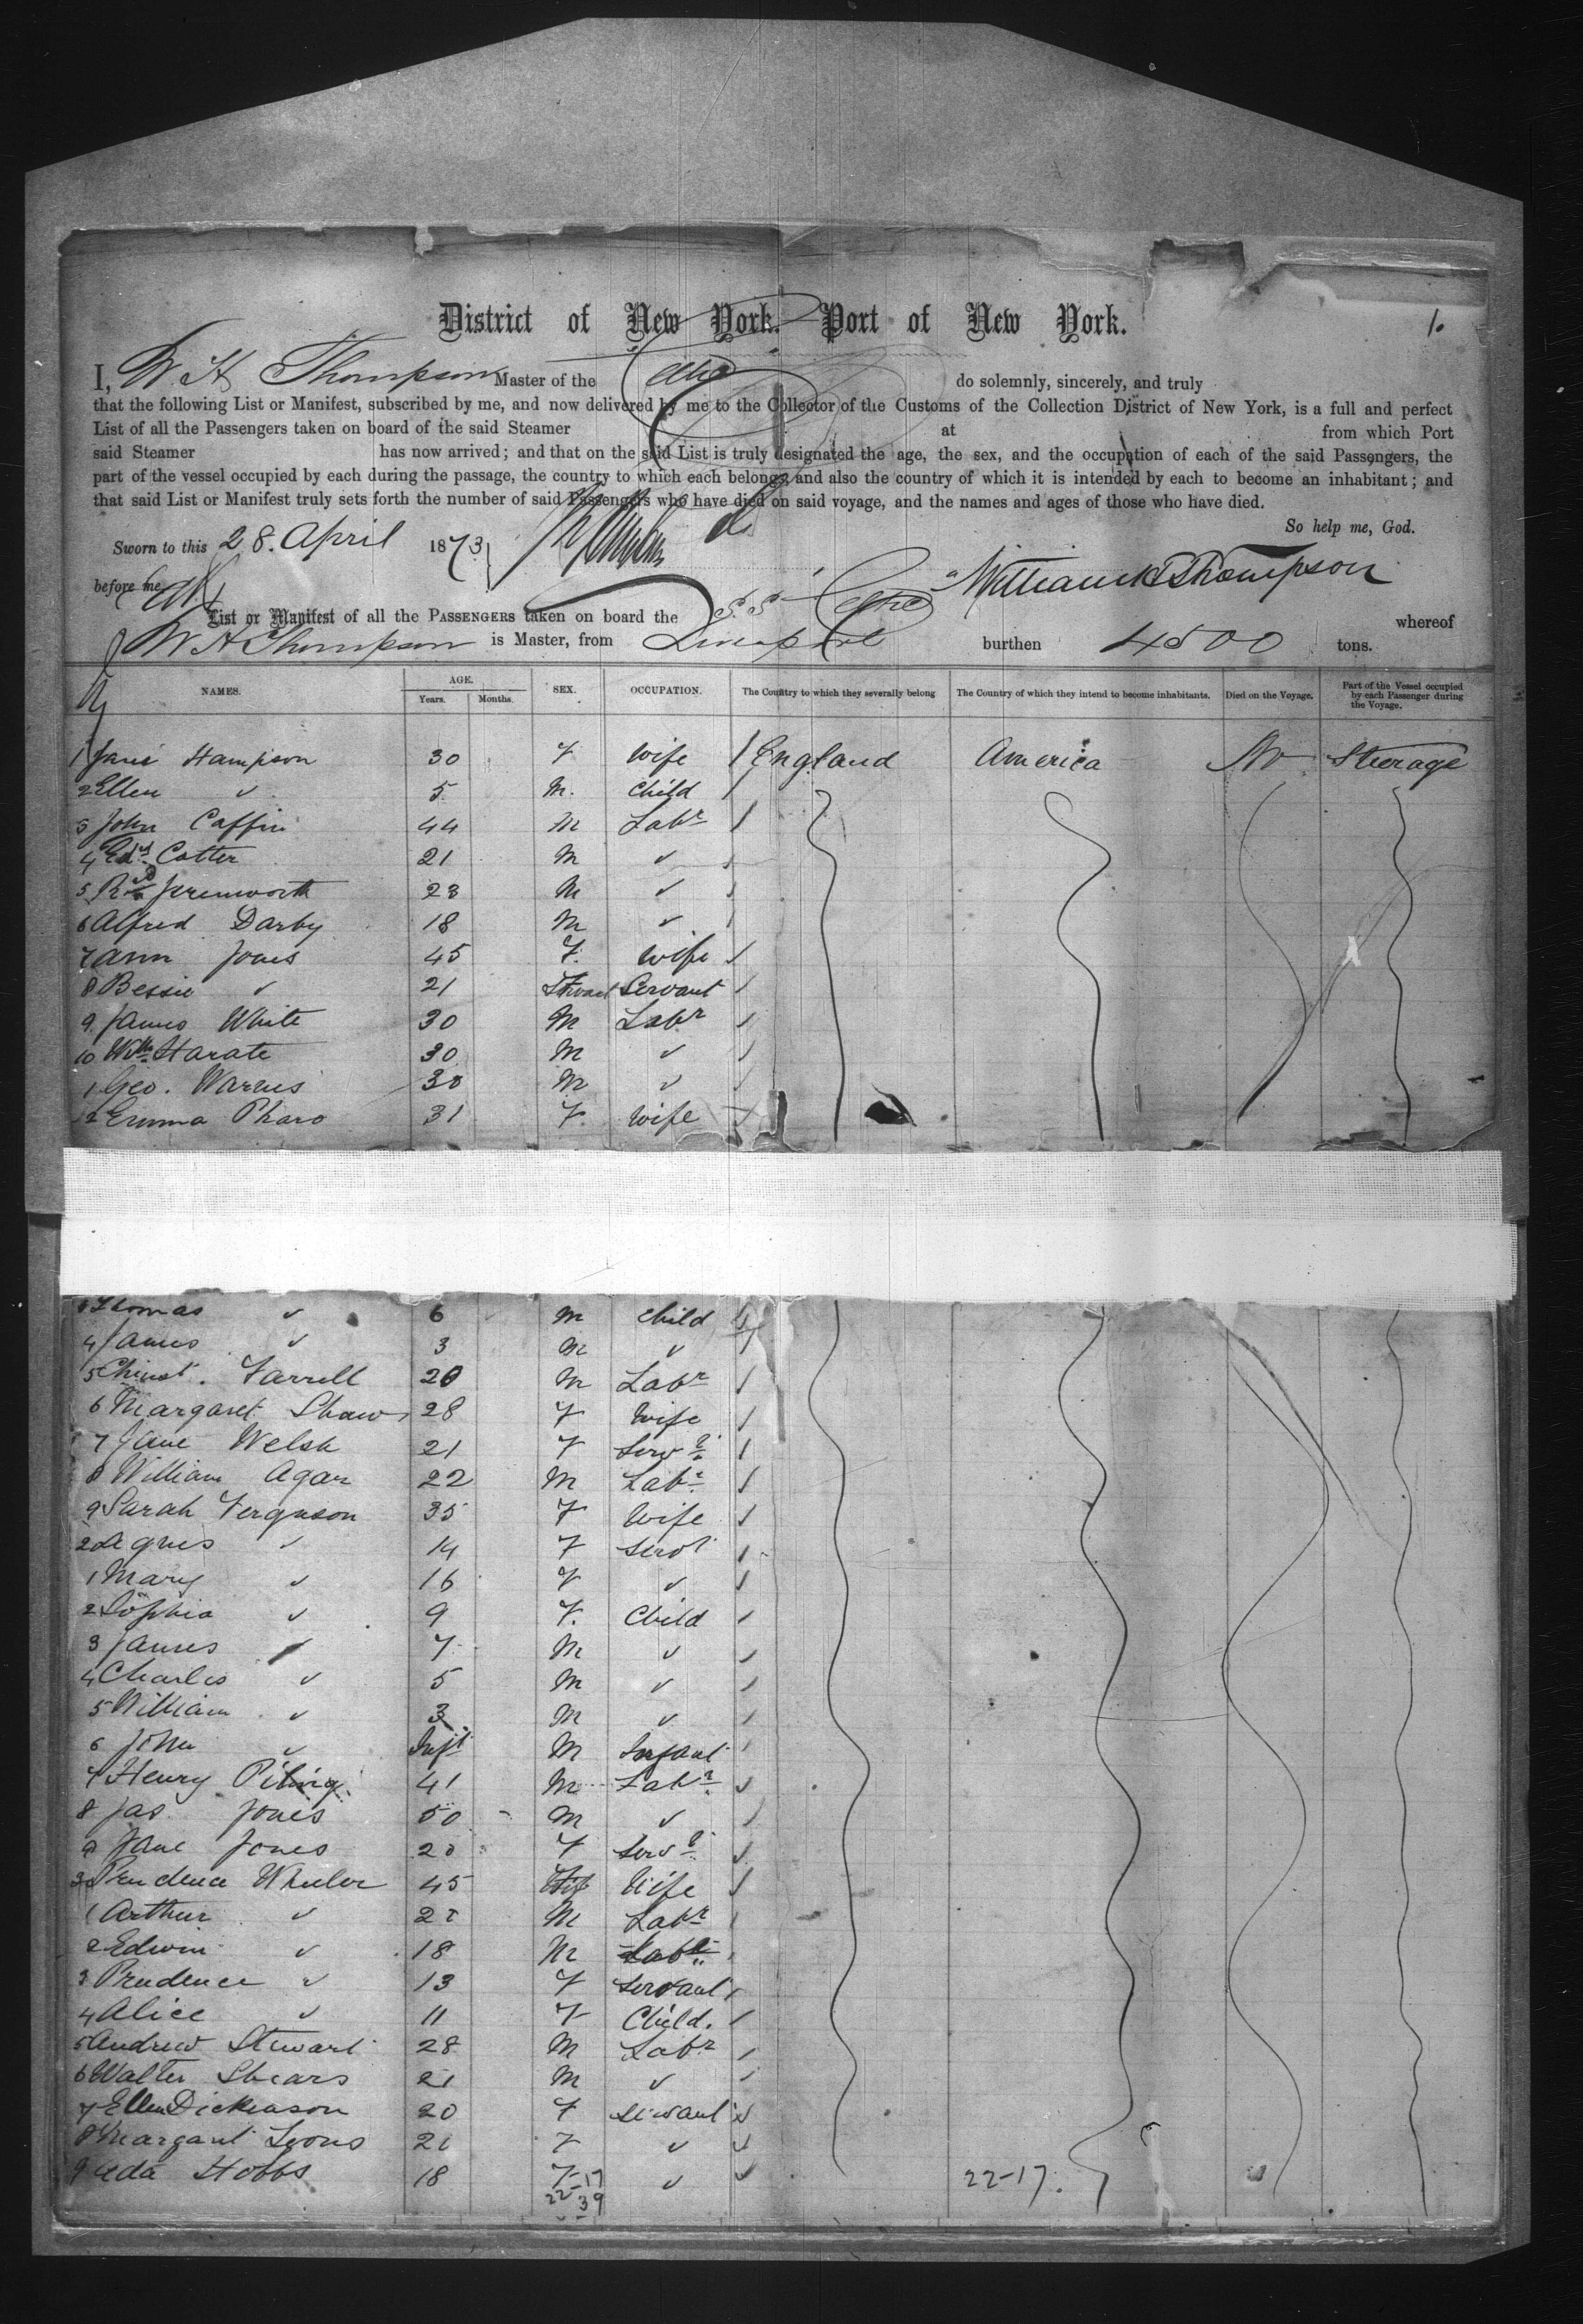 District of New York. Port of New York.
1.
I, W H Thompson Master of the Celtic do solemnly, sincerely, and truly
that the following List or Manifest, subscribed by me, and now delivered by me to the Collector of the Customs of the Collection District of New York, is a full and perfect
List of all the Passengers taken on board of the said Steamer at from which Port
said Steamer has now arrived; and that on the said List is truly designated the age, the sex, and the occupation of each of the said Passengers, the
part of the vessel occupied by each during the passage, the country to which each belongs, and also the country of which it is intended by each to become an inhabitant; and
that said List or Manifest truly sets forth the number of said Passengers who have died on said voyage, and the names and ages of those who have died.
So help me, God.
Sworn to this 28. April 1873
before me William H Thompson
List or Manifest of all the PASSENGERS taken on board the S.S. Celtic whereof
W H Thompson is Master, from Liverpool burthen 4500 tons.
NAMES. AGE. Years. Months. SEX. OCCUPATION. The Country to which they severally belong The Country of which they intend to become inhabitants. Died on the Voyage. Part of the Vessel occupied by each Passenger during the Voyage.
1 Jane Hampson 30 F Wife England America No Steerage
2 Ellen 5 M. Child
3 John Caffin 44 M Labr
4 Edwd Cotter 21 M
5 Rd 23 M
6 Alfred Darby 18 M
7 Ann Jones 45 F. Wife
8 Bessie 21 Servant
9 James White 30 M Labr
10 Wm Harate 30 M
1 Geo. Warens 30 M
12 Emma Pharo 31 F. Wife
3 Thomas 6 M Child
4 James 3 M
5 Christ. Farrell 20 M Labr
6 Margaret Shaw 28 F Wife
7 Jane Welsh 21 F Servt
8 William Agar 22 M Labr
9 Sarah Ferguson 35 F Wife
20 Agnes 14 F Servt
1 Mary 16 F
2 Sophia 9 F. Child
3 James 7 M
4 Charles 5 M
5 William 3 M
6 John Inft M Infant
7 Henry 41 M Labr
8 Jas. Jones 50 M
9 Jane Jones 20 F Servt
30 Prudence Wheeler 45 Wife
1 Arthur M Labr
2 Edwin 18 M Labr
3 Prudence 13 F Servant
4 Alice 11 F Child.
5 Andrew Stewart 28 M Labr
6 Walter Shears 21 M
7 Ellen Dickenson 20 F Servant
8 Margaret Lyons 21 F
9 Ada Hobbs 18 F
22-17 22-17.
39